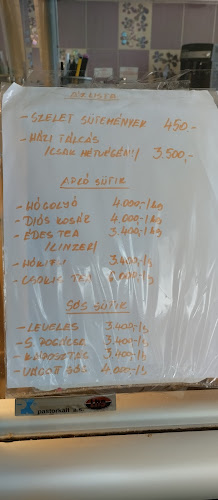 ÁRLISTA
- SZELET SÜTEMÉNYEK 450.-
- HÁZI TÁLCÁS
/CSAK HÉTVÉGÉN!!/ 3.500,-
APRÓ SÜTIK
- HÓGOLYÓ 4.000.-/kg
- DIÓS KOSÁR 4.000.-/kg
- ÉDES TEA 3.400.-/kg
/LINZER/
- HÓKIFLI 3.400.-/kg
TEA
SÓS SÜTIK
- LEVELES 3.400.-/kg
3.400.-/kg
3.400.-/kg
- VÁGOTT SÓS 4.000.-/kg